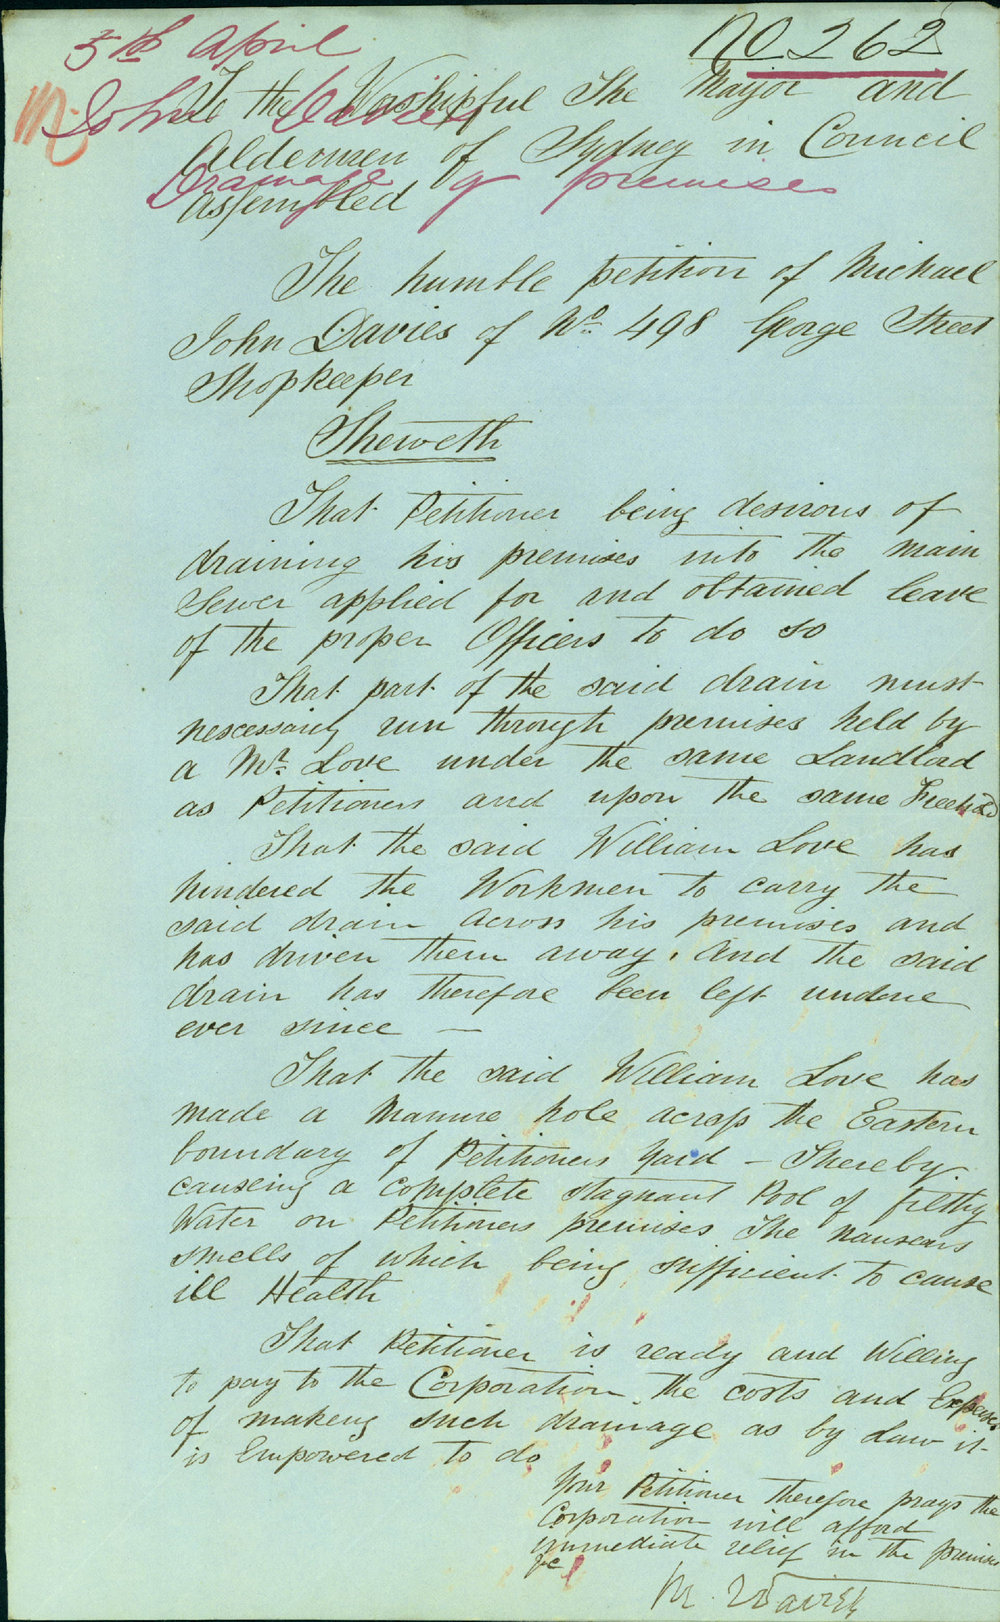 No 262
5th April
M. John Davies
Drainage of premises
To the Worshipful The Mayor and
Aldermen of Sydney in Council
assembled
The humble petition of Michael
John Davies of No. 498 George Street
Shopkeeper
Sheweth
That Petitioner being desirous of
draining his premises into the main
Sewer applied for and obtained leave
of the proper Officers to do so
That part of the said drain must
nescessarily run through premises held by
a Mr. Love under the same Landlord
as Petitioners and upon the same Freehold
That the said William Love has
hindered the Workmen to carry the
said drain across his premises and
has driven them away. And the said
drain has therefore been left undone
ever since —
That the said William Love has
made a Manure hole across the Eastern
boundary of Petitioners Yard — Thereby
causeing a complete stagnant Pool of filthy
Water on Petitioners premises The nauseaus
smells of which being sufficient to cause
ill Health
That Petitioner is ready and Willing
to pay to the Corporation the costs and Expenses
of makeing such drainage as by Law it
is Empowered to do
Your Petitioner therefore prays the
Corporation will afford
immediate relief in the premises
&c
M. J Davies